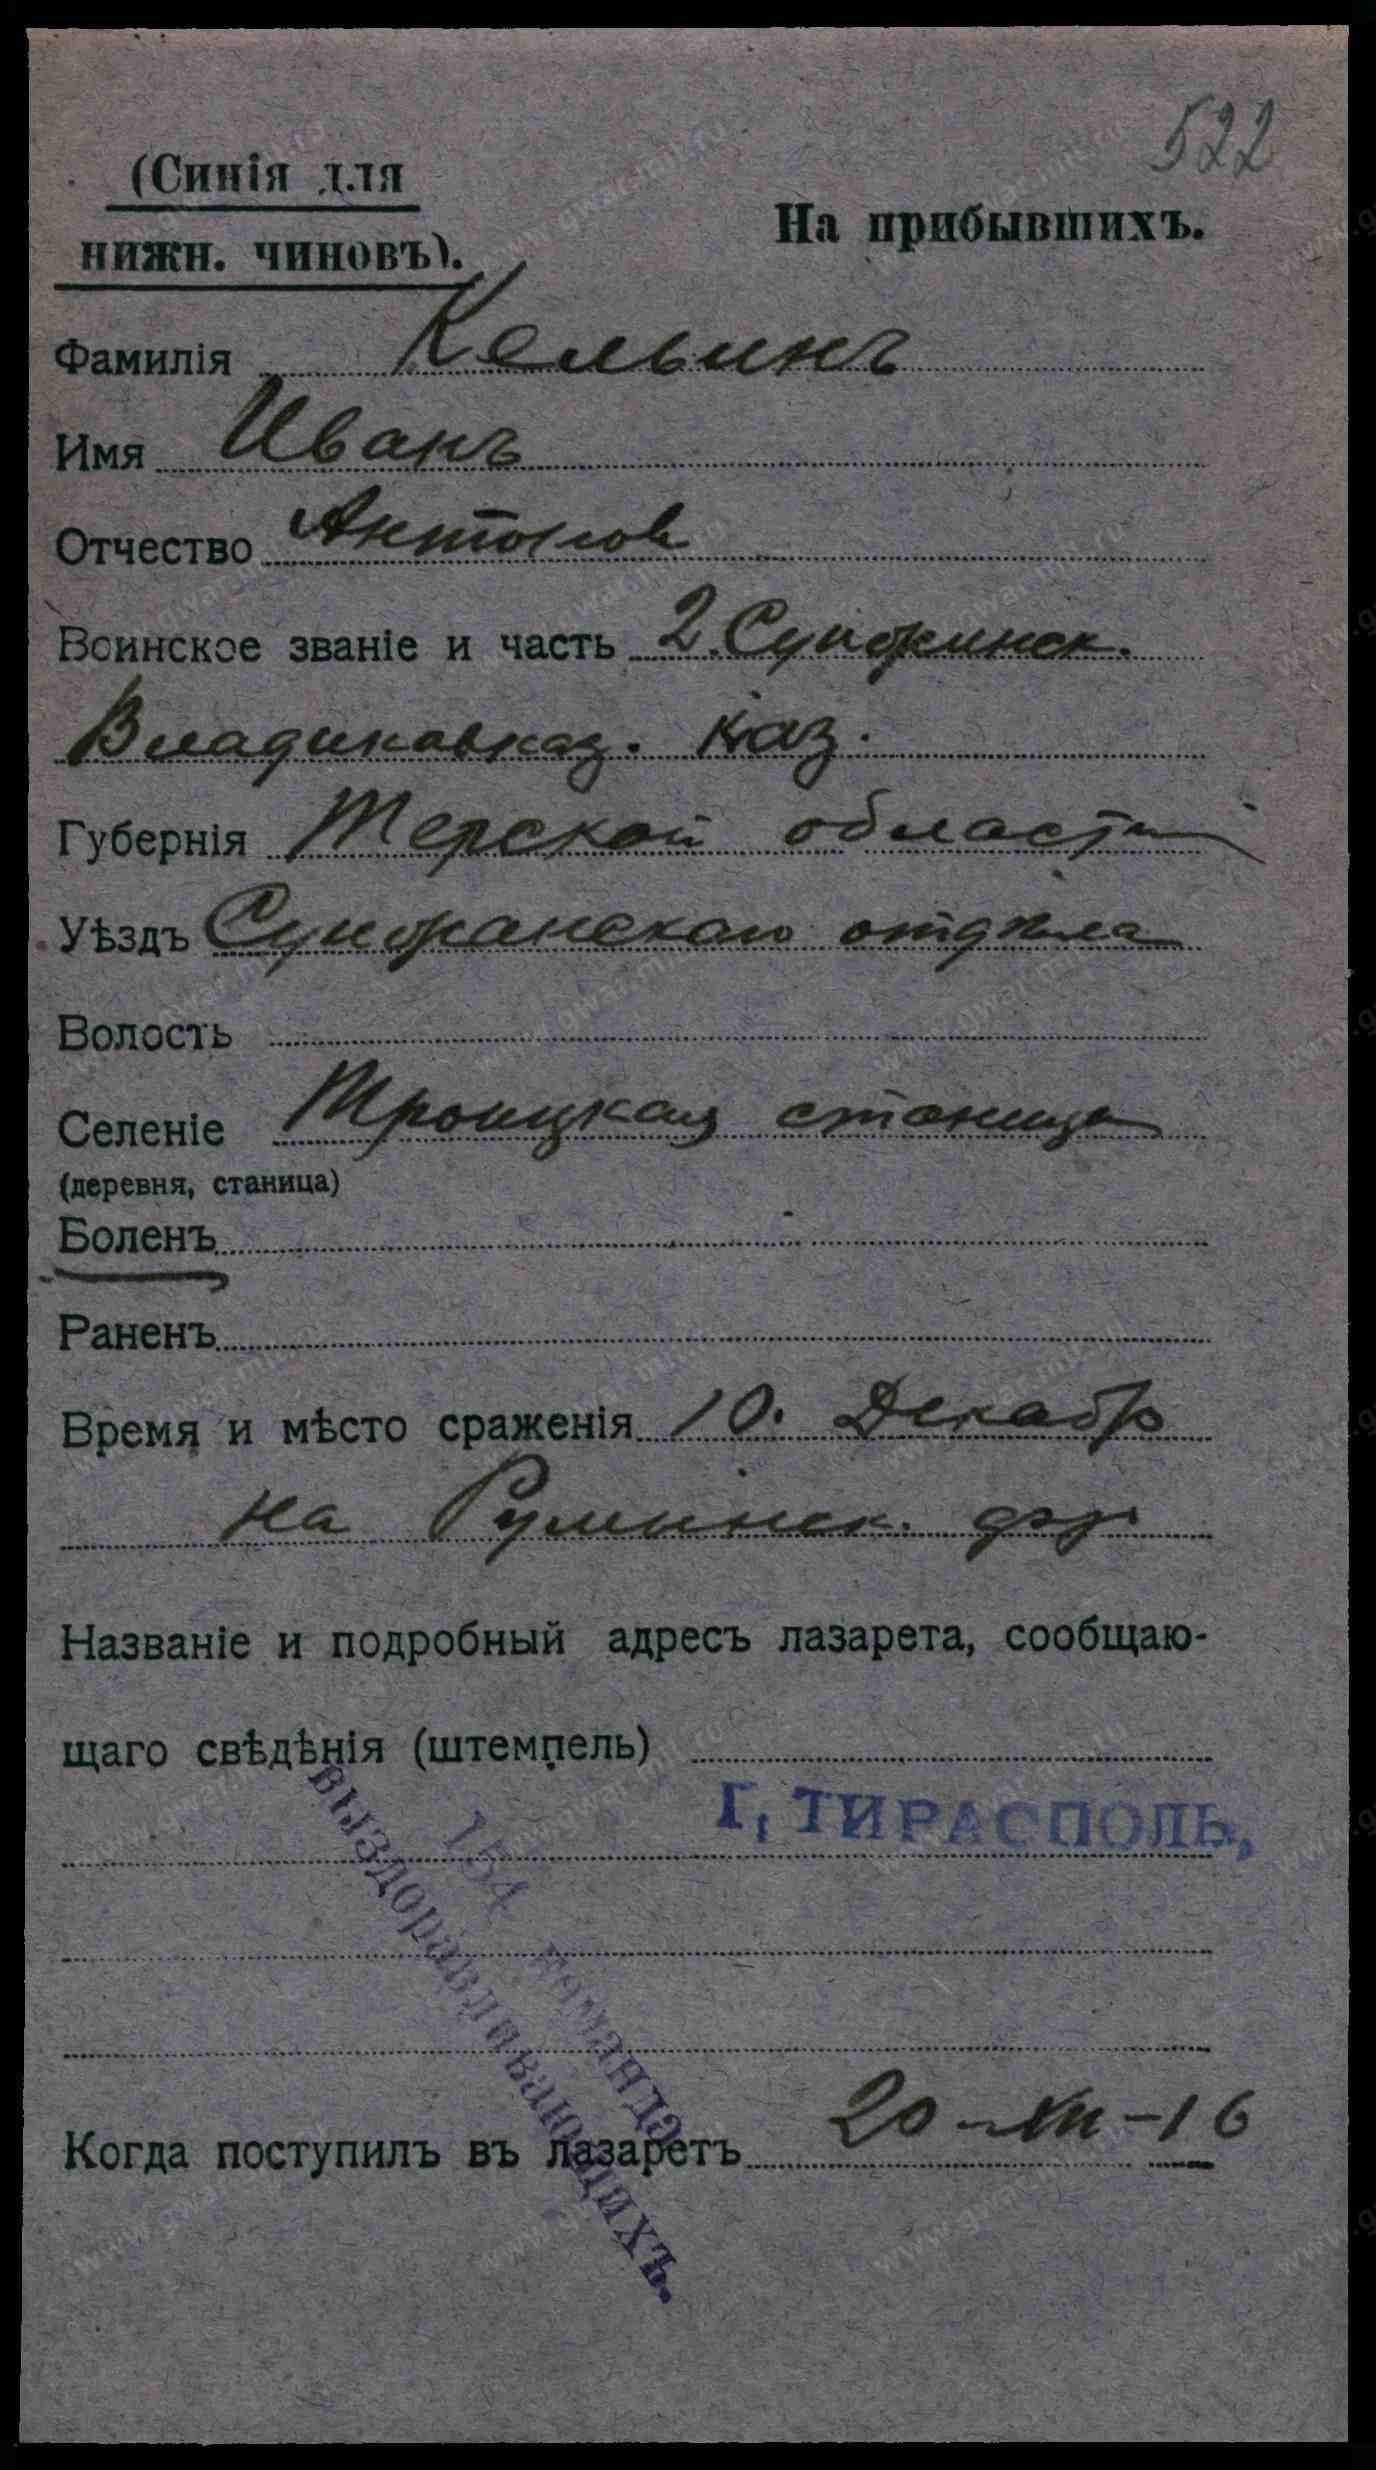 522
(Синія для
нижн. чиновъ).
На прибывшихъ.
Фамилія Кельинъ
Имя Иванъ
Отчество Антонов
Воинское званіе и часть 2. Сунженск.
Владикавказ. Каз.
Губернія Терской области
Уѣздъ Сунженскаго отдѣла
Волость
Селеніе Троицкая станица
(деревня, станица)
Боленъ
Раненъ
Время и мѣсто сраженія 10. Декабр
на Румынск. фр.
Названіе и подробный адресъ лазарета, сообщаю-
щаго свѣдѣнія (штемпель)
Г, ТИРАСПОЛЬ,
154 команда
выздоравливающихъ.
Когда поступилъ въ лазаретъ 20-XII-16